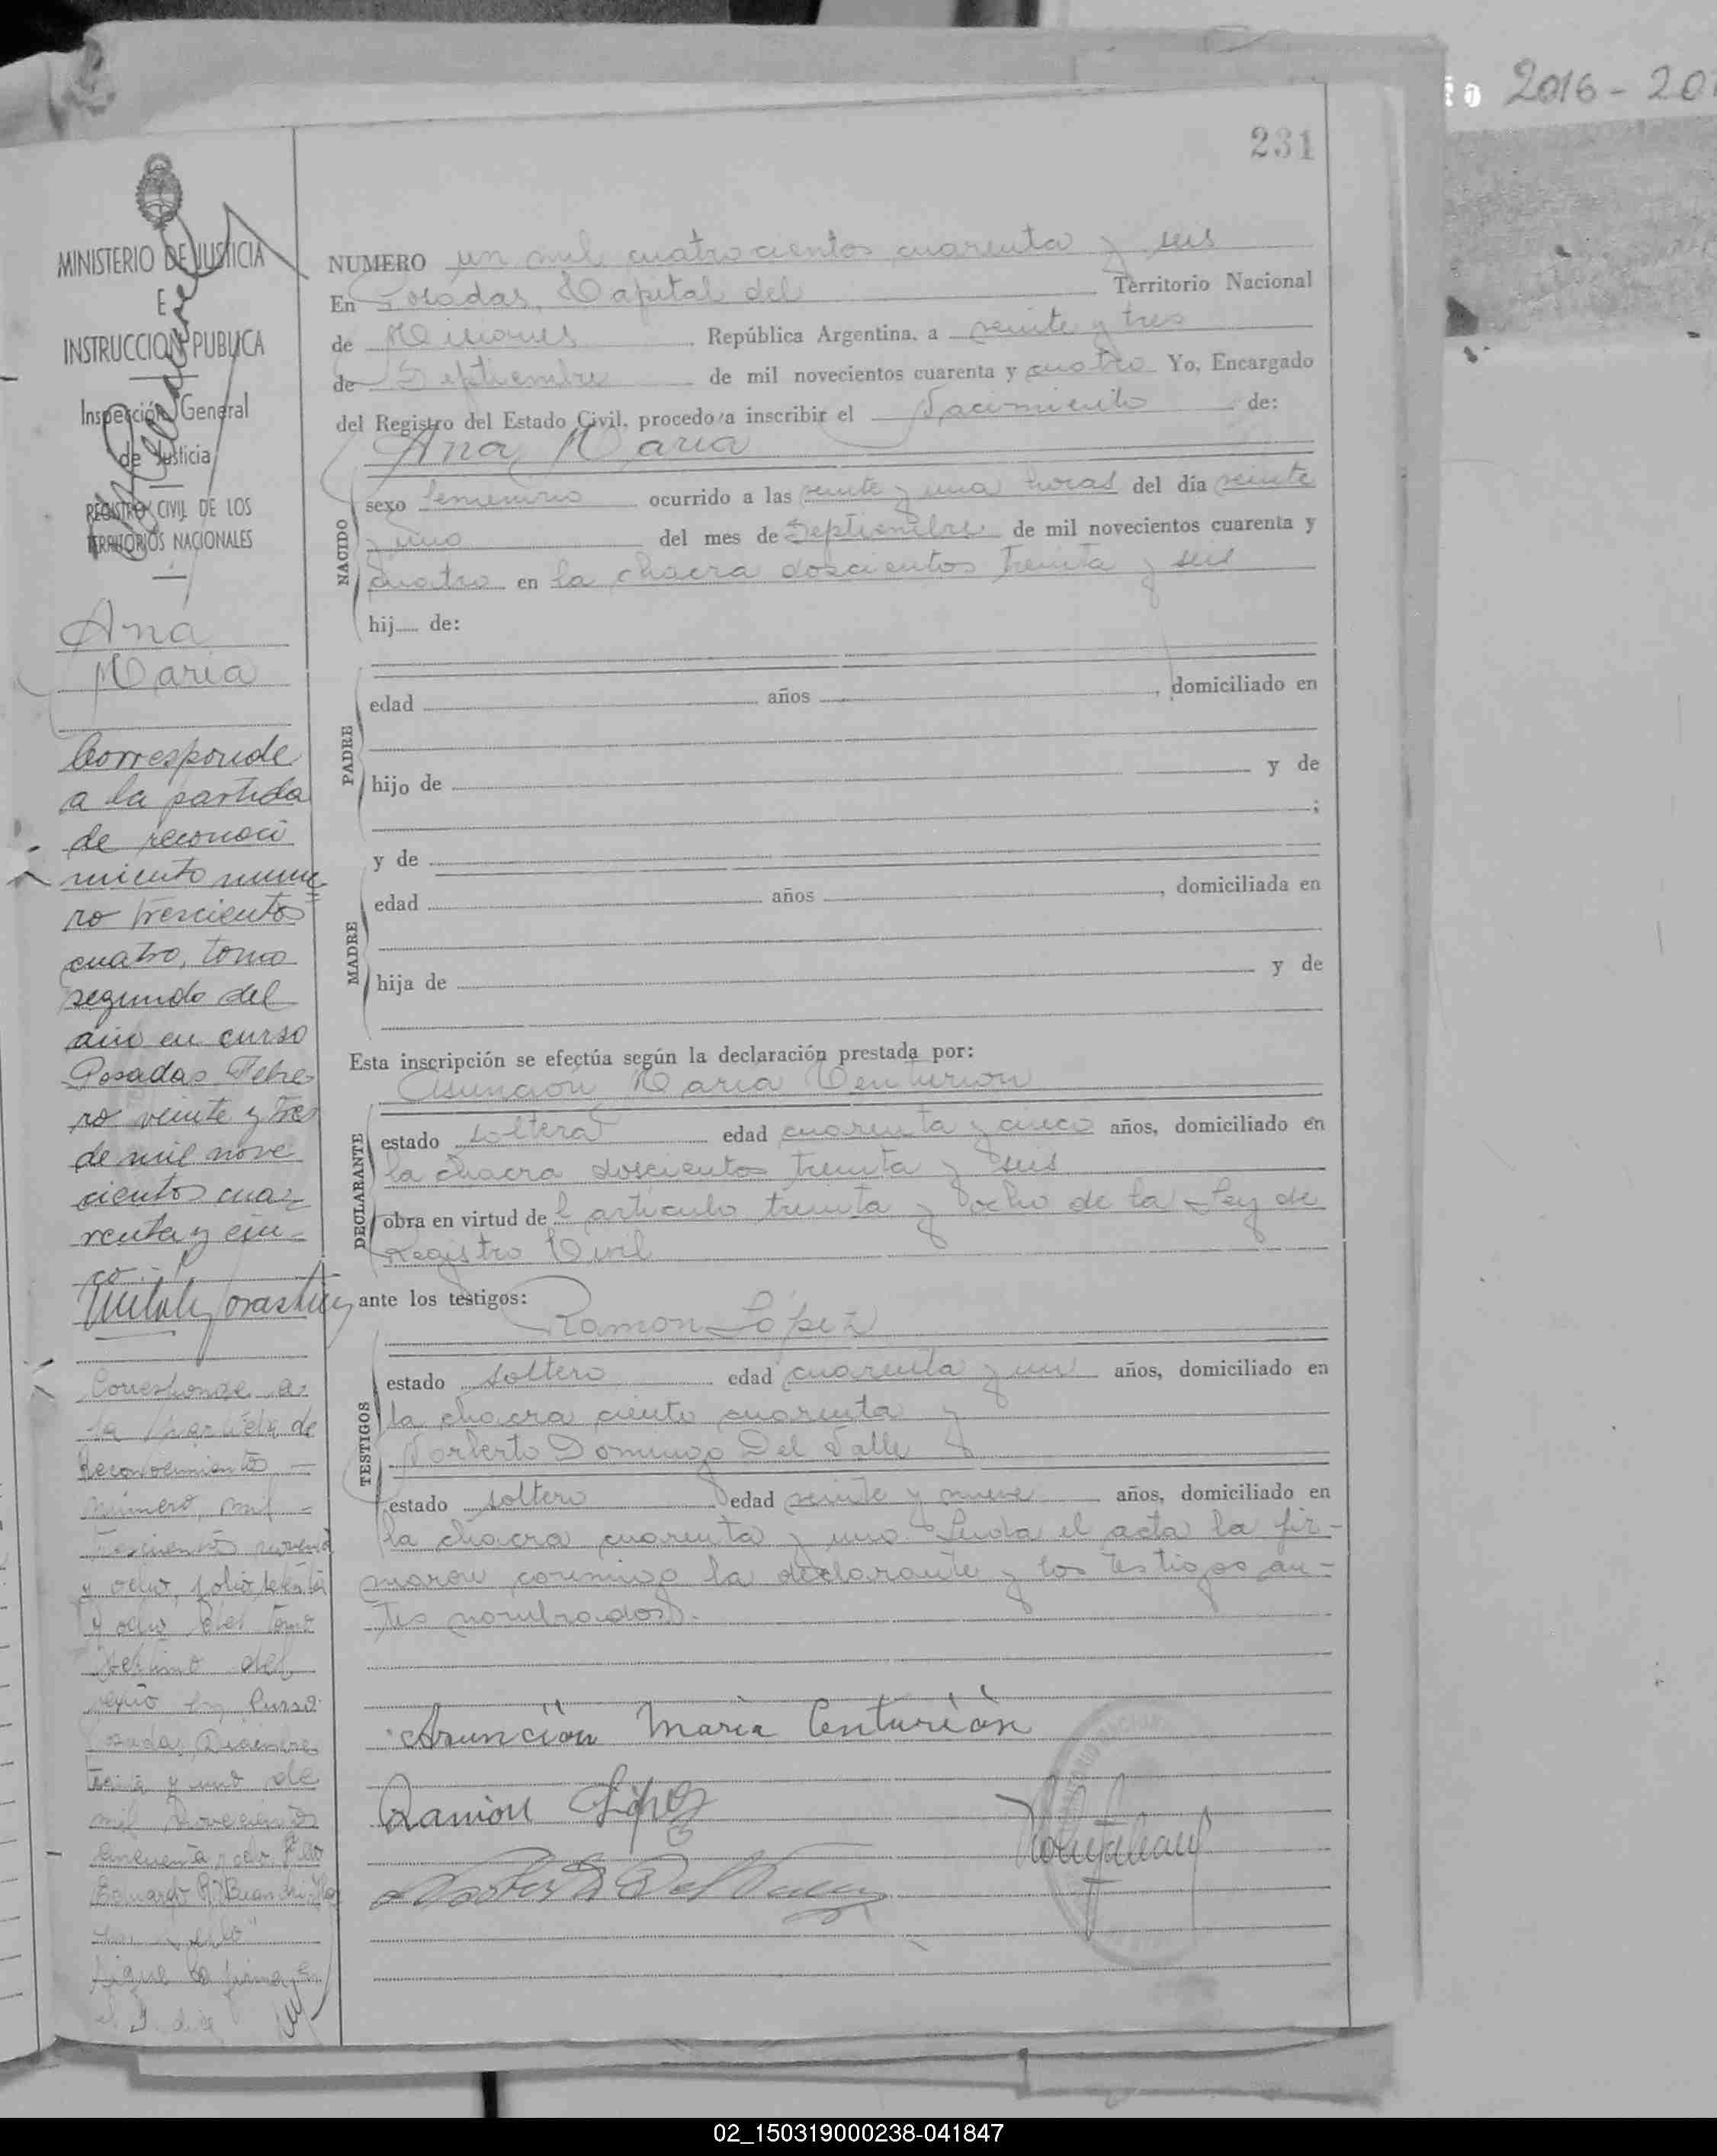 2016-20
231
MINISTERIO DE JUSTICIA
E
INSTRUCCION PUBLICA
Inspección General
de Justicia
REGISTRO CIVIL DE LOS
TERRITORIOS NACIONALES
Ana
Maria
Corresponde
a la partida
de reconoci
miento nume
ro trescientos
cuatro, tomo
segundo del
año en curso
Posadas Febre
ro veinte y tres
de mil nove
cientos cua
renta y cin-
co.-
Corresponde a
la partida de
Reconocimiento -
número mil -
y ocho, folio
y ocho del tomo
del
en curso
Posadas, Diciembre
treinta y uno de
mil novecientos
cincuenta y ocho. Fdo
Eduardo R. Bianchi
sigue la firma
NUMERO un mil cuatrocientos cuarenta y seis
En Posadas, Capital del Territorio Nacional
de Misiones República Argentina, a veinte y tres
de Septiembre de mil novecientos cuarenta y cuatro Yo, Encargado
del Registro del Estado Civil, procedo a inscribir el Nacimiento de:
Ana Maria
NACIDO
sexo femenino ocurrido a las veinte y una horas del día veinte
y uno del mes de Septiembre de mil novecientos cuarenta y
cuatro en la chacra doscientos treinta y seis
hij de:
PADRE
edad años , domiciliado en
hijo de y de
;
y de
MADRE
edad años , domiciliada en
hija de y de
Esta inscripción se efectúa según la declaración prestada por:
Asunción Maria Centurion
DECLARANTE
estado soltera edad cuarenta y cinco años, domiciliado en
la chacra doscientos treinta y seis
obra en virtud de l articulo treinta y ocho de la Ley de
Registro Civil
ante los testigos:
Ramon López
TESTIGOS
estado soltero edad cuarenta y un años, domiciliado en
la chacra ciento cuarenta y
Norberto Domingo Del Valle
estado soltero edad veinte y nueve años, domiciliado en
la chacra cuarenta y uno. Leida el acta la fir-
maron conmigo la declarante y los testigos an-
tes nombrados.
Asunción Maria Centurión
Ramón López
02_150319000238-041847